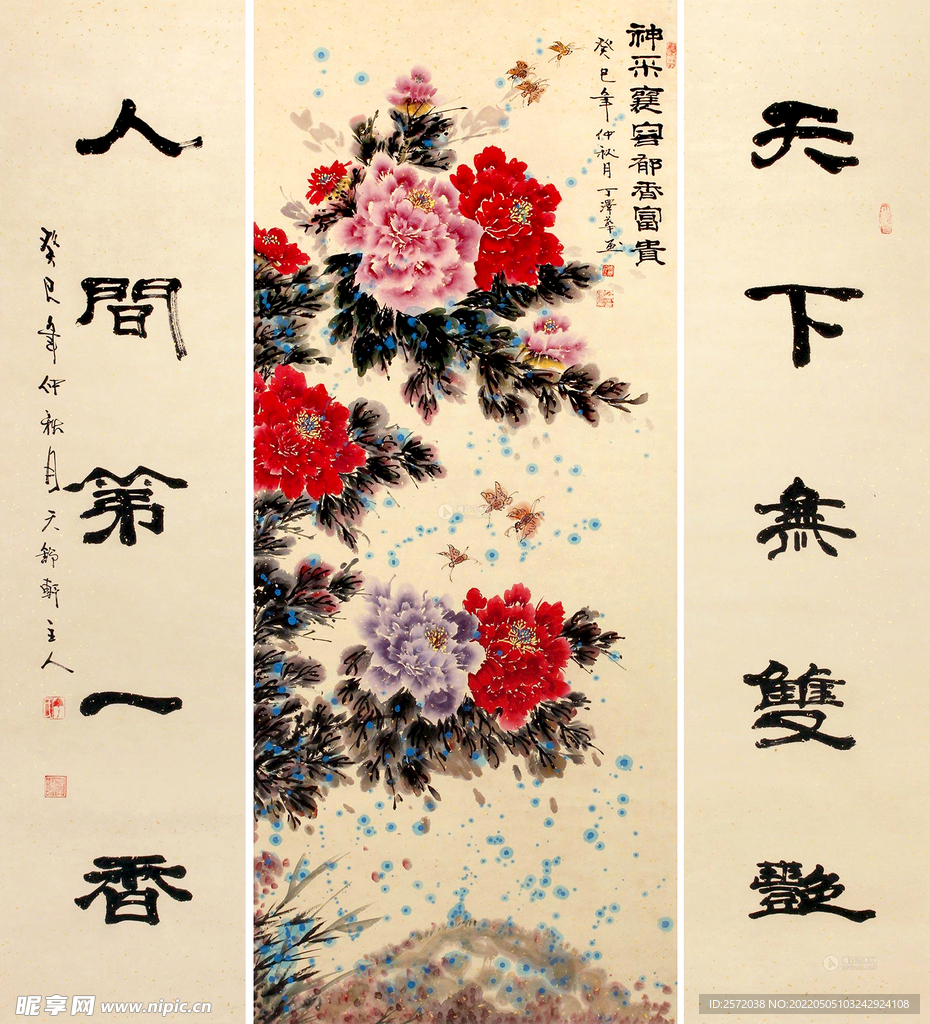 天下無雙艷
神采襄容郁香富貴
癸巳年仲秋月丁澤華画
人間第一香
癸巳年仲秋月天舒軒主人
昵享网 www.nipic.cn
ID:2572038 NO:20220505103242924108